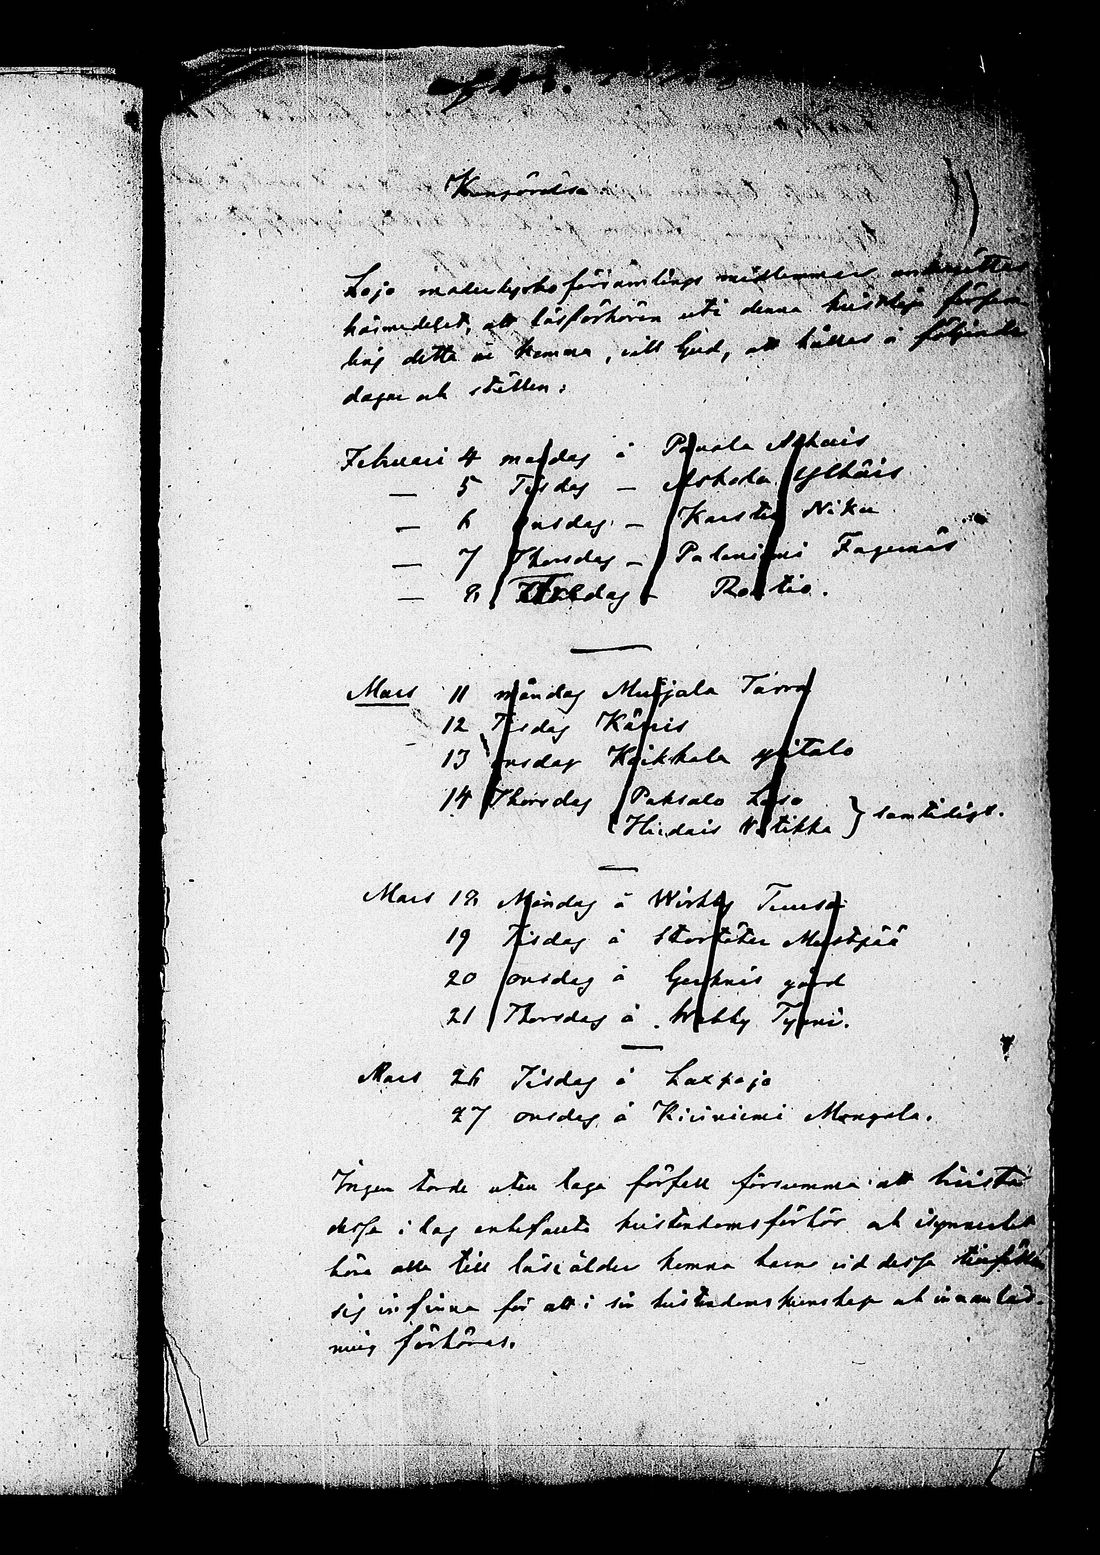 Kungörelse
Lojo moderkyrkoförsamlings medlemmar underrättas
härmedelst, att läsförhören uti denna kristliga försam-
ling detta år komma, vill Gud, att hållas å följande
dagar och ställen:
Februari 4 måndag å Paavola Alhais
— 5 Tisdag — Askola Ylhäis
— 6 onsdag — Karstu Niku
— 7 Thorsdag — Paloniemi Fagernäs
— 8 dag — Routio.
Mars 11 måndag Muijala Tarra
12 Tisdag Kärris
13 onsdag Koikkala ylitalo
14 Thorsdag Paksalo Laso
Hiidais Nätikka } samtidigt.
Mars 18 Måndag å Wirkby Tuusa
19 Tisdag å Skortäter Maukpää
20 onsdag å Gerknäs gård
21 Thorsdag å Wohby Tyyni.
Mars 26 Tisdag å Laxpojo
27 onsdag å Kirkniemi Mongola.
Ingen torde utan laga förfall försumma att bivista
dessa i dag antefauta kristendomsförhör och isynnerhet
böra alla till läseålder komna barn vid dessa tillfällen
sig infinna för att i sin kristendomskunskap och innanläs-
ning förhöras.